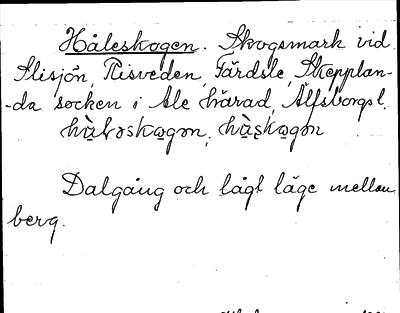 Håleskogen. Skogsmark vid
Slisjön, Risveden, Färdsle, Skepplan-
-da socken i Ale härad, Älfsborgs l.
hà̤ləskogən, hà̤skogən
Dalgång och lågt läge mellan
berg.